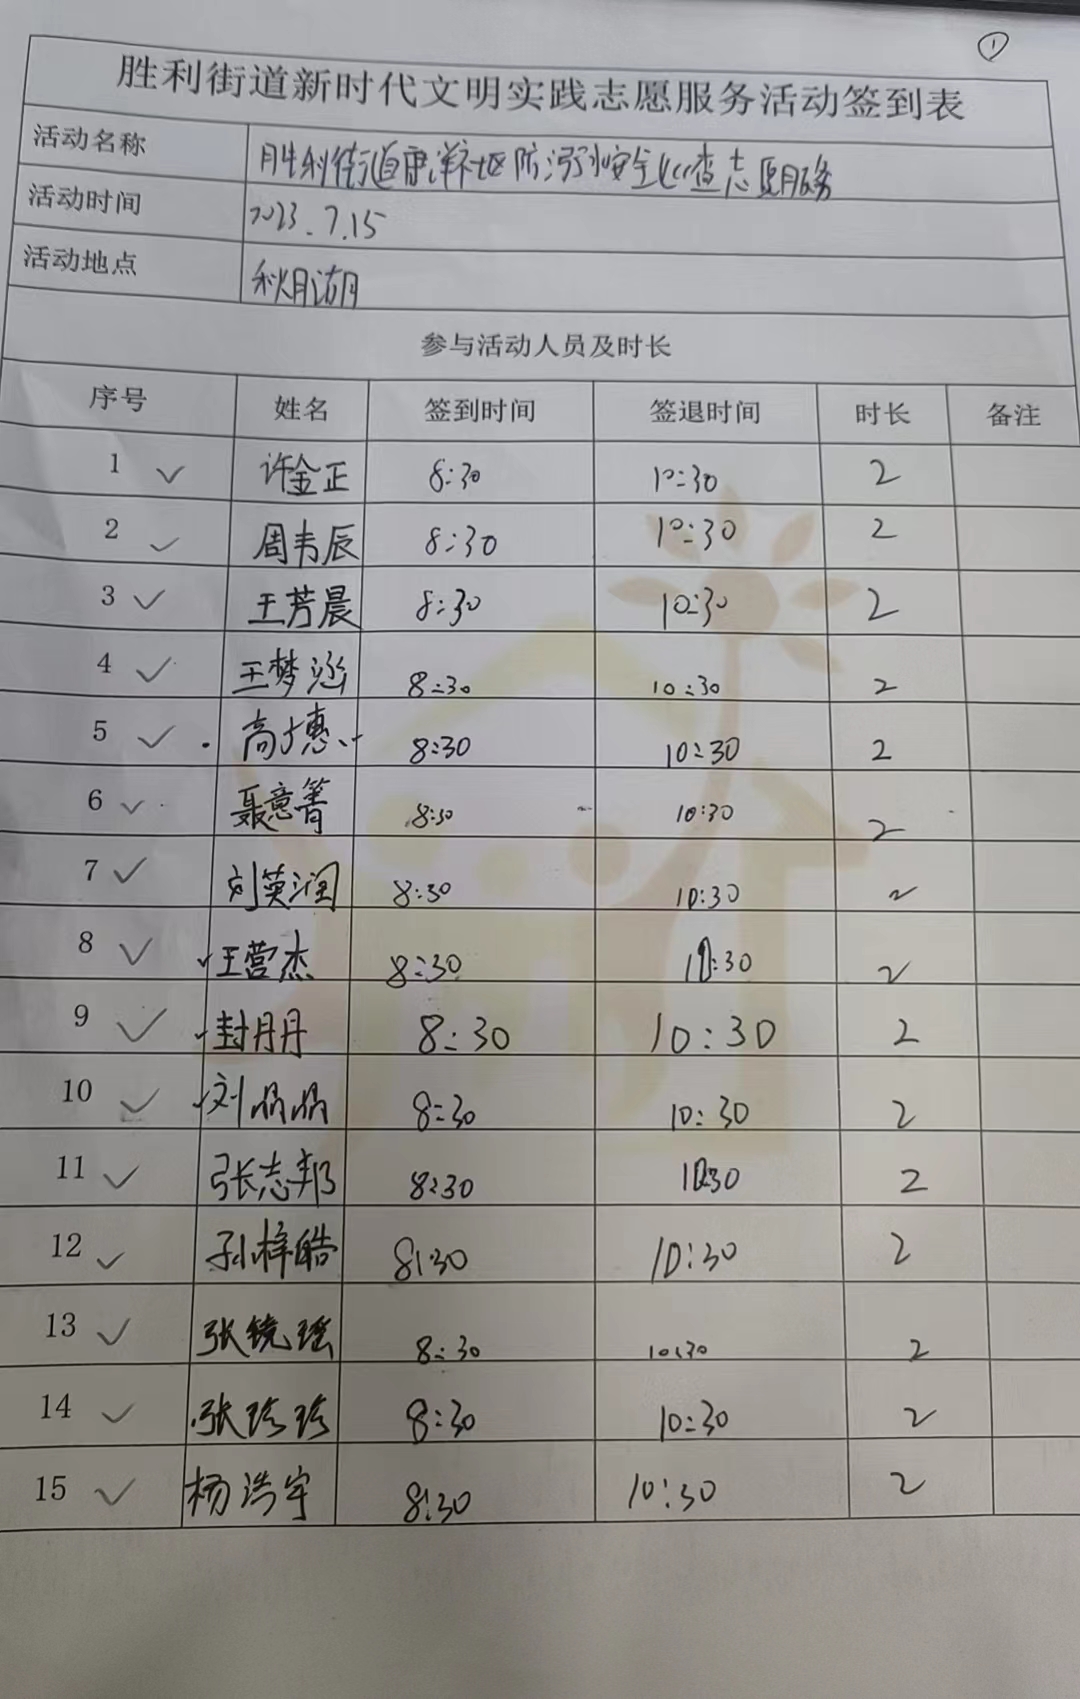 ①
胜利街道新时代文明实践志愿服务活动签到表
活动名称 胜利街道康洋社区防溺水安全巡查志愿服务
活动时间 2023.7.15
活动地点 秋月湖
参与活动人员及时长
序号 姓名 签到时间 签退时间 时长 备注
1 ✓ 许金正 8:30 10:30 2
2 ✓ 周韦辰 8:30 10:30 2
3 ✓ 王芳晨 8:30 10:30 2
4 ✓ 王梦涵 8:30 10:30 2
5 ✓ 高 8:30 10:30 2
6 ✓ 聂意箐 8:30 10:30 2
7 ✓ 刘英润 8:30 10:30 2
8 ✓ 王营杰 8:30 10:30 2
9 ✓ 封丹丹 8:30 10:30 2
10 ✓ 刘晶晶 8:30 10:30 2
11 ✓ 张志邦 8:30 10:30 2
12 ✓ 孙梓皓 8:30 10:30 2
13 ✓ 张镜瑶 8:30 10:30 2
14 ✓ 张珍珍 8:30 10:30 2
15 ✓ 杨浩宇 8:30 10:30 2